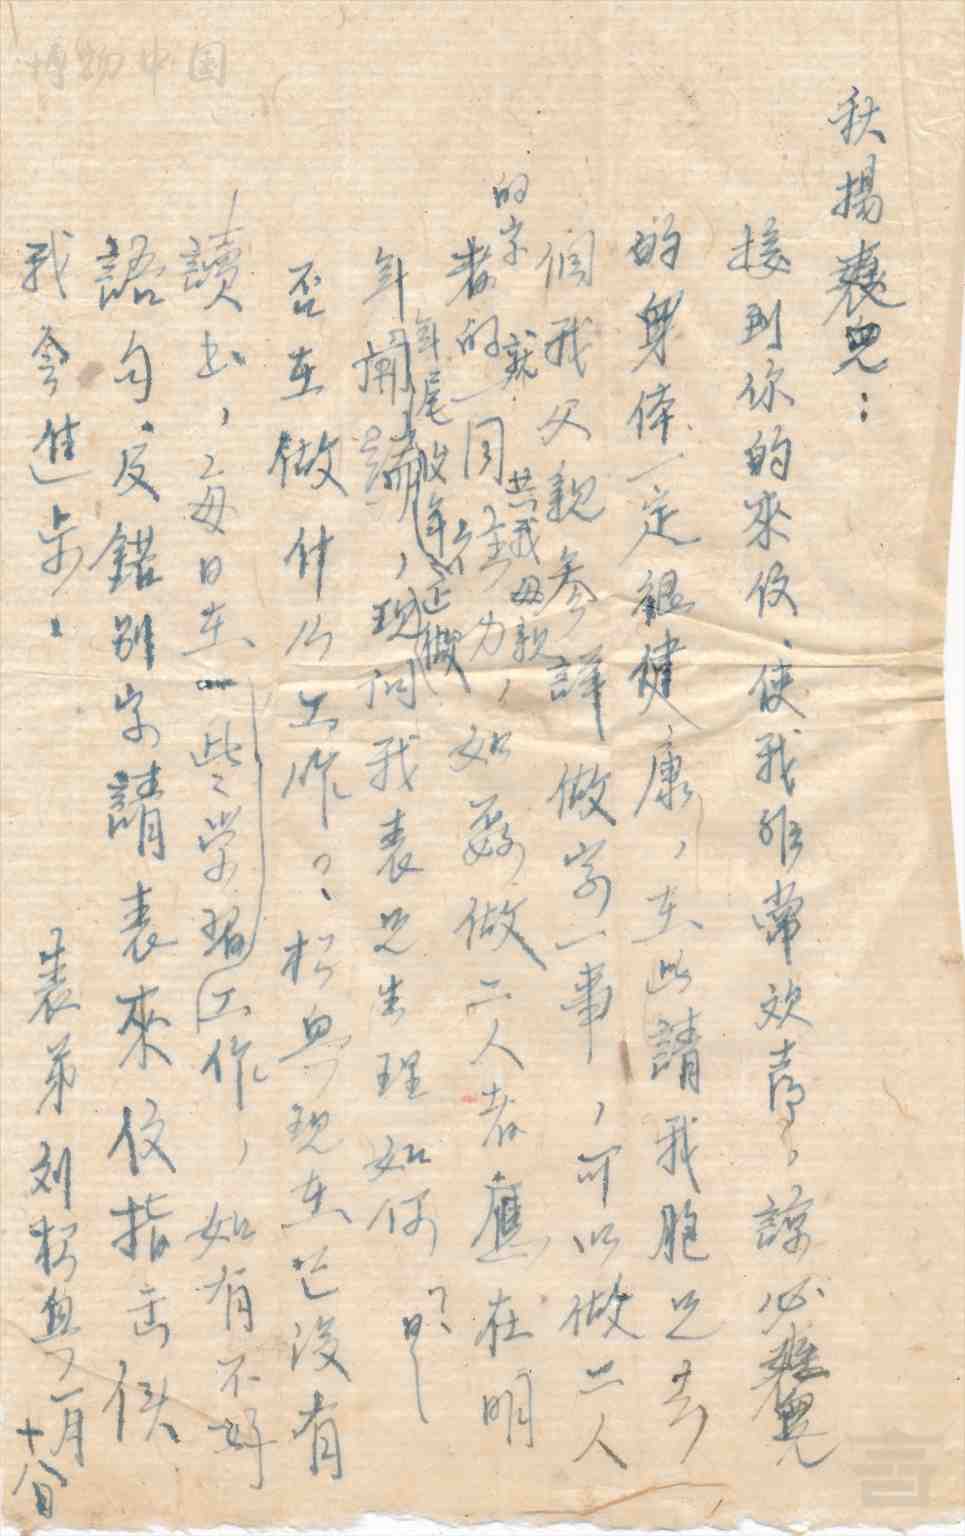 博物中国
秋揚表兄：
接到你的來信、使我非常欢喜，諒必表兄
的身体一定福健康，在此請我胞兄去
個我父親參詳做字一事，可以做二人
的字就共我母親
者的一同努力，如要做二人者應在明
年尾收年 正做
年開端，現問我表兄生理如何
否在做什么工作？松興現在也沒有
讀书，每日在一些学習工作，如有不好
語句、反錯別字請表來信指击俟
我會進步：
表弟刘松興 一月
十八日